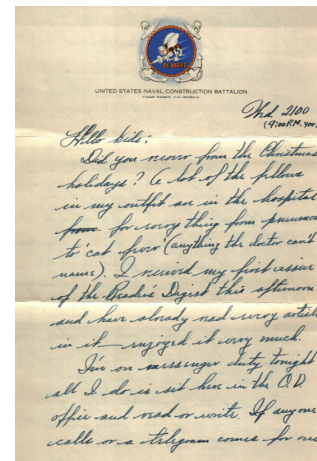 SEABEES
UNITED STATES NAVAL CONSTRUCTION BATTALION
Wed 2100
(9:00 P.M. you)
Hello kids:
Did you recover from the Christmas
holidays? A lot of the fellows
in my outfit are in the hospital
from for every thing from pneumonia
to 'cat fever' (anything the doctor can't
name). I received my first issue
of the Readers Digest this afternoon
and have already read every article
in it - enjoyed it very much.
I'm on messenger duty tonight
all I do is sit here in the O.D.
office and read or write. If anyone
calls or a telegram comes for one